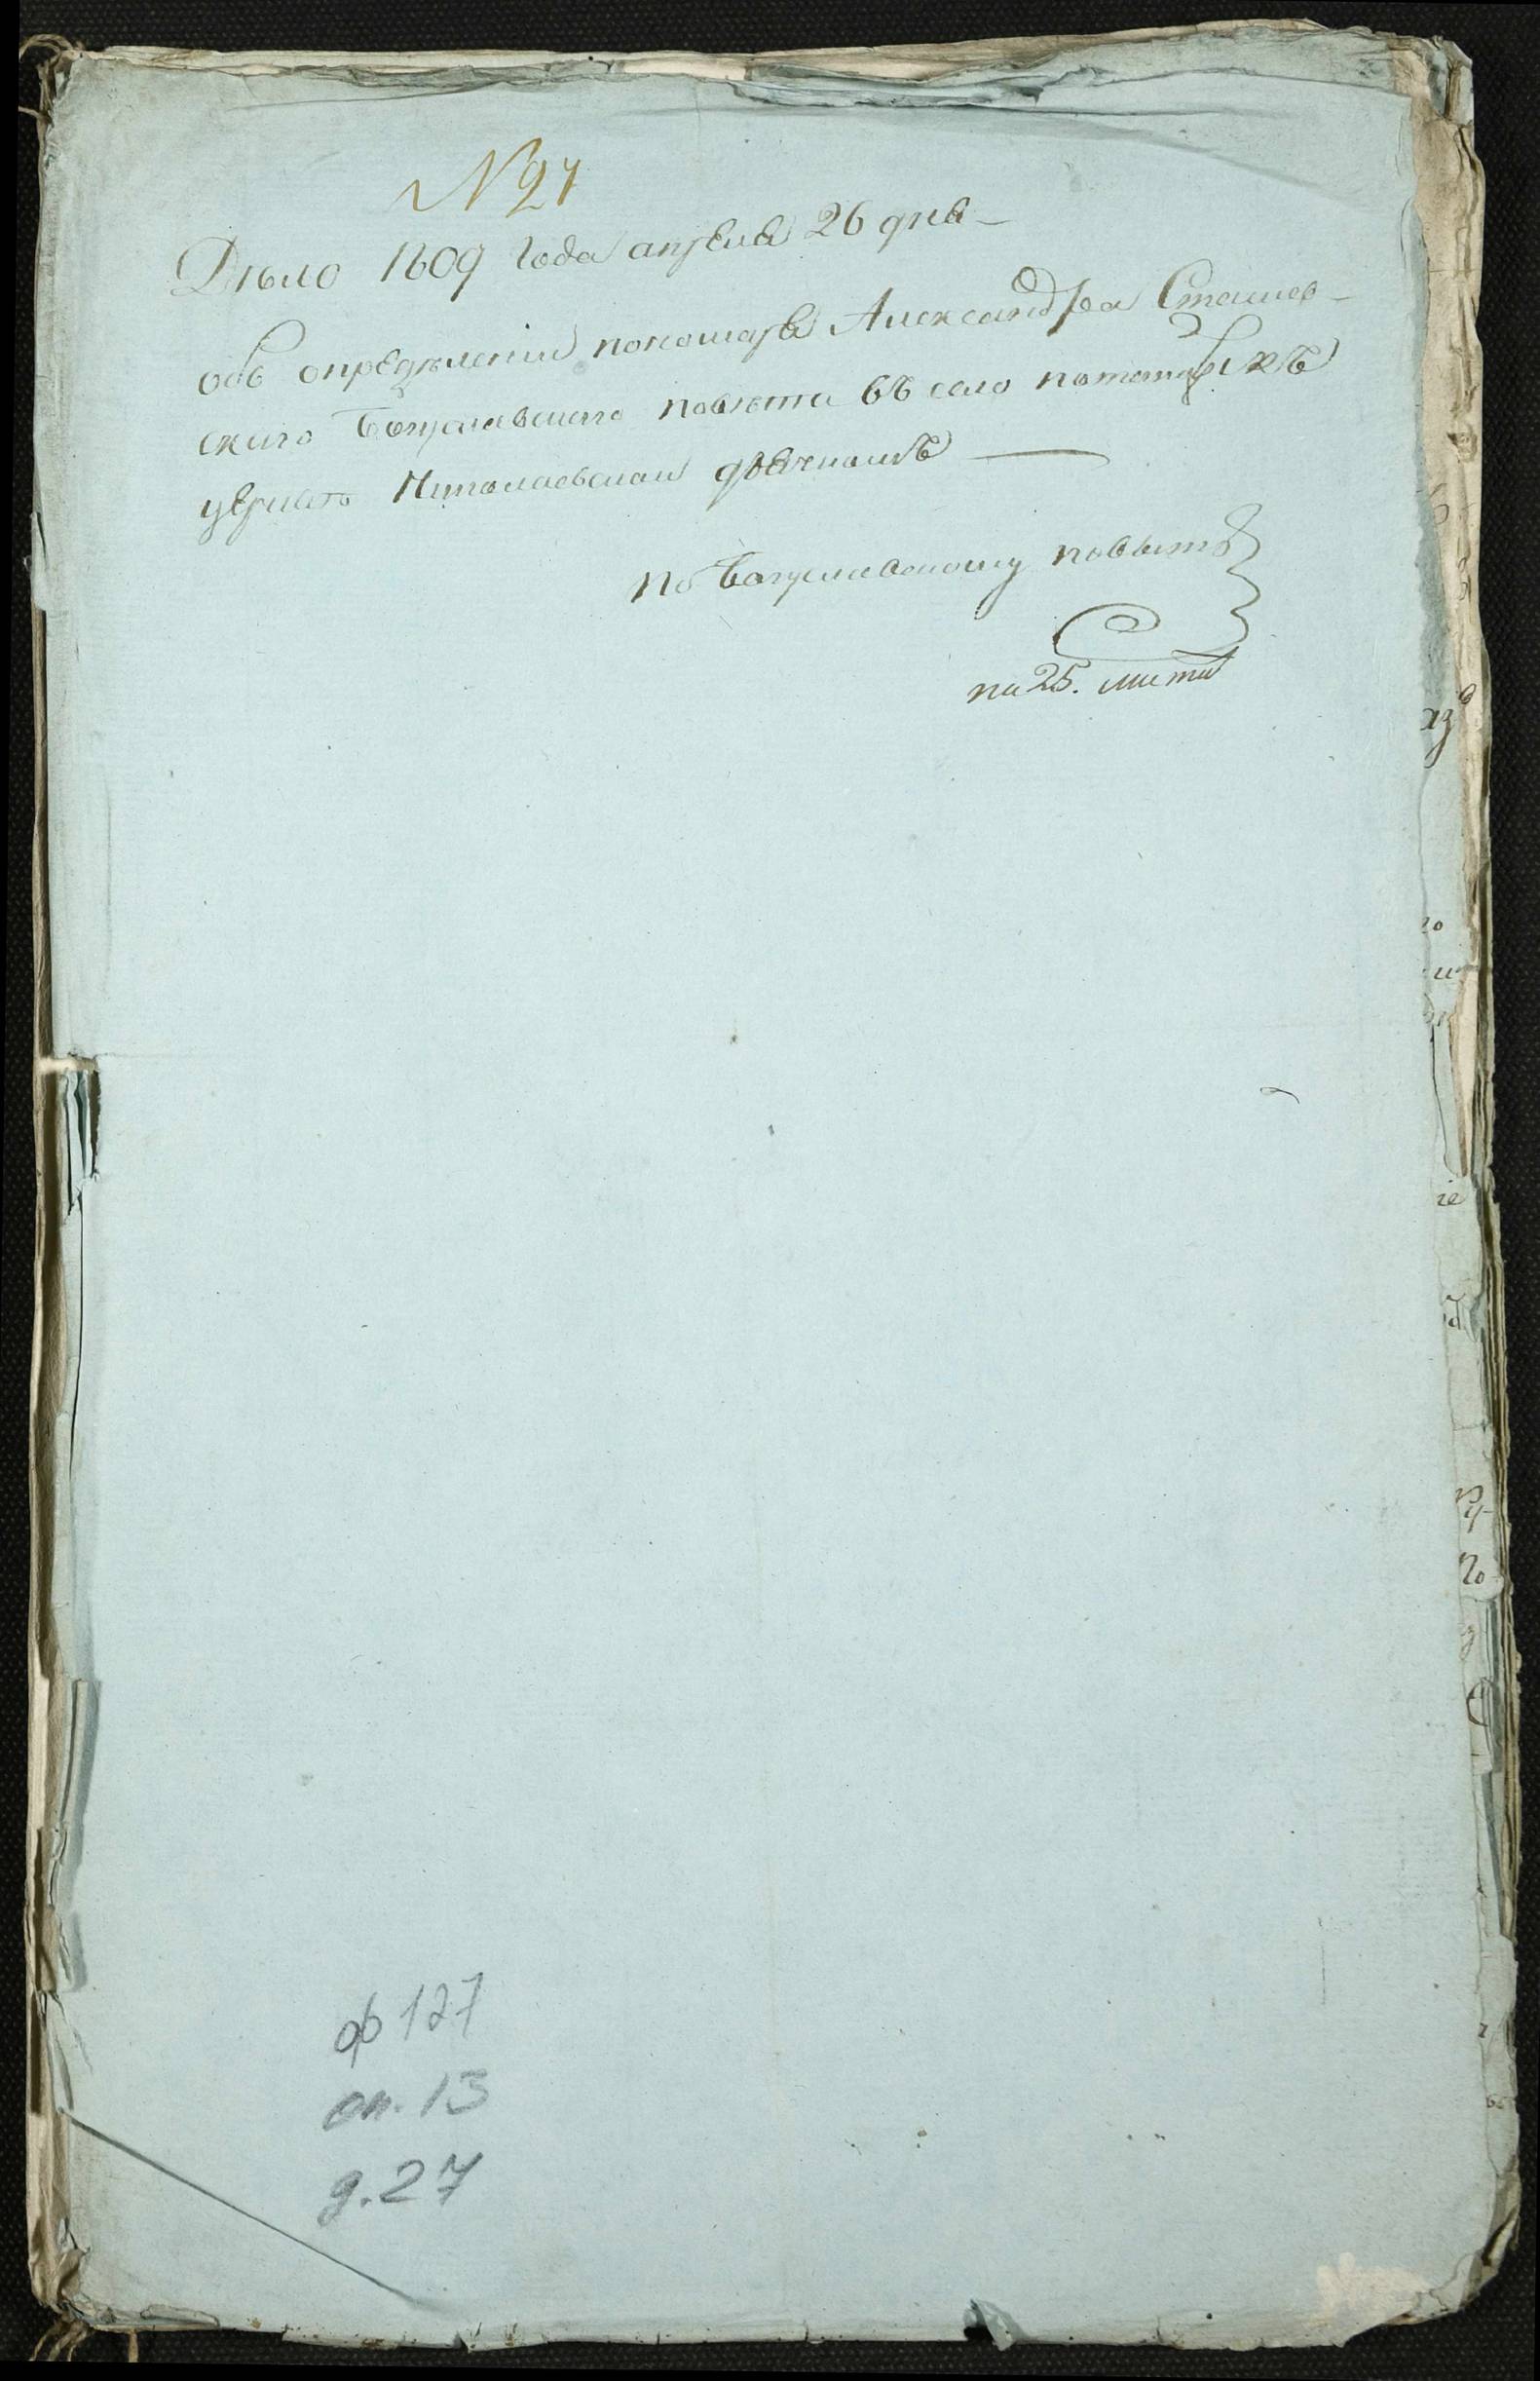 N 27
Дѣло 1809 года апреля 26 дня –
объ опредѣлении пономаря Александра Сташев-
скаго Богуславскаго повѣта въ село къ
церквѣ Николаевской дьячкомъ —
по Богуславскому повѣту
на 25. листа
ф 127
оп. 13
д. 27